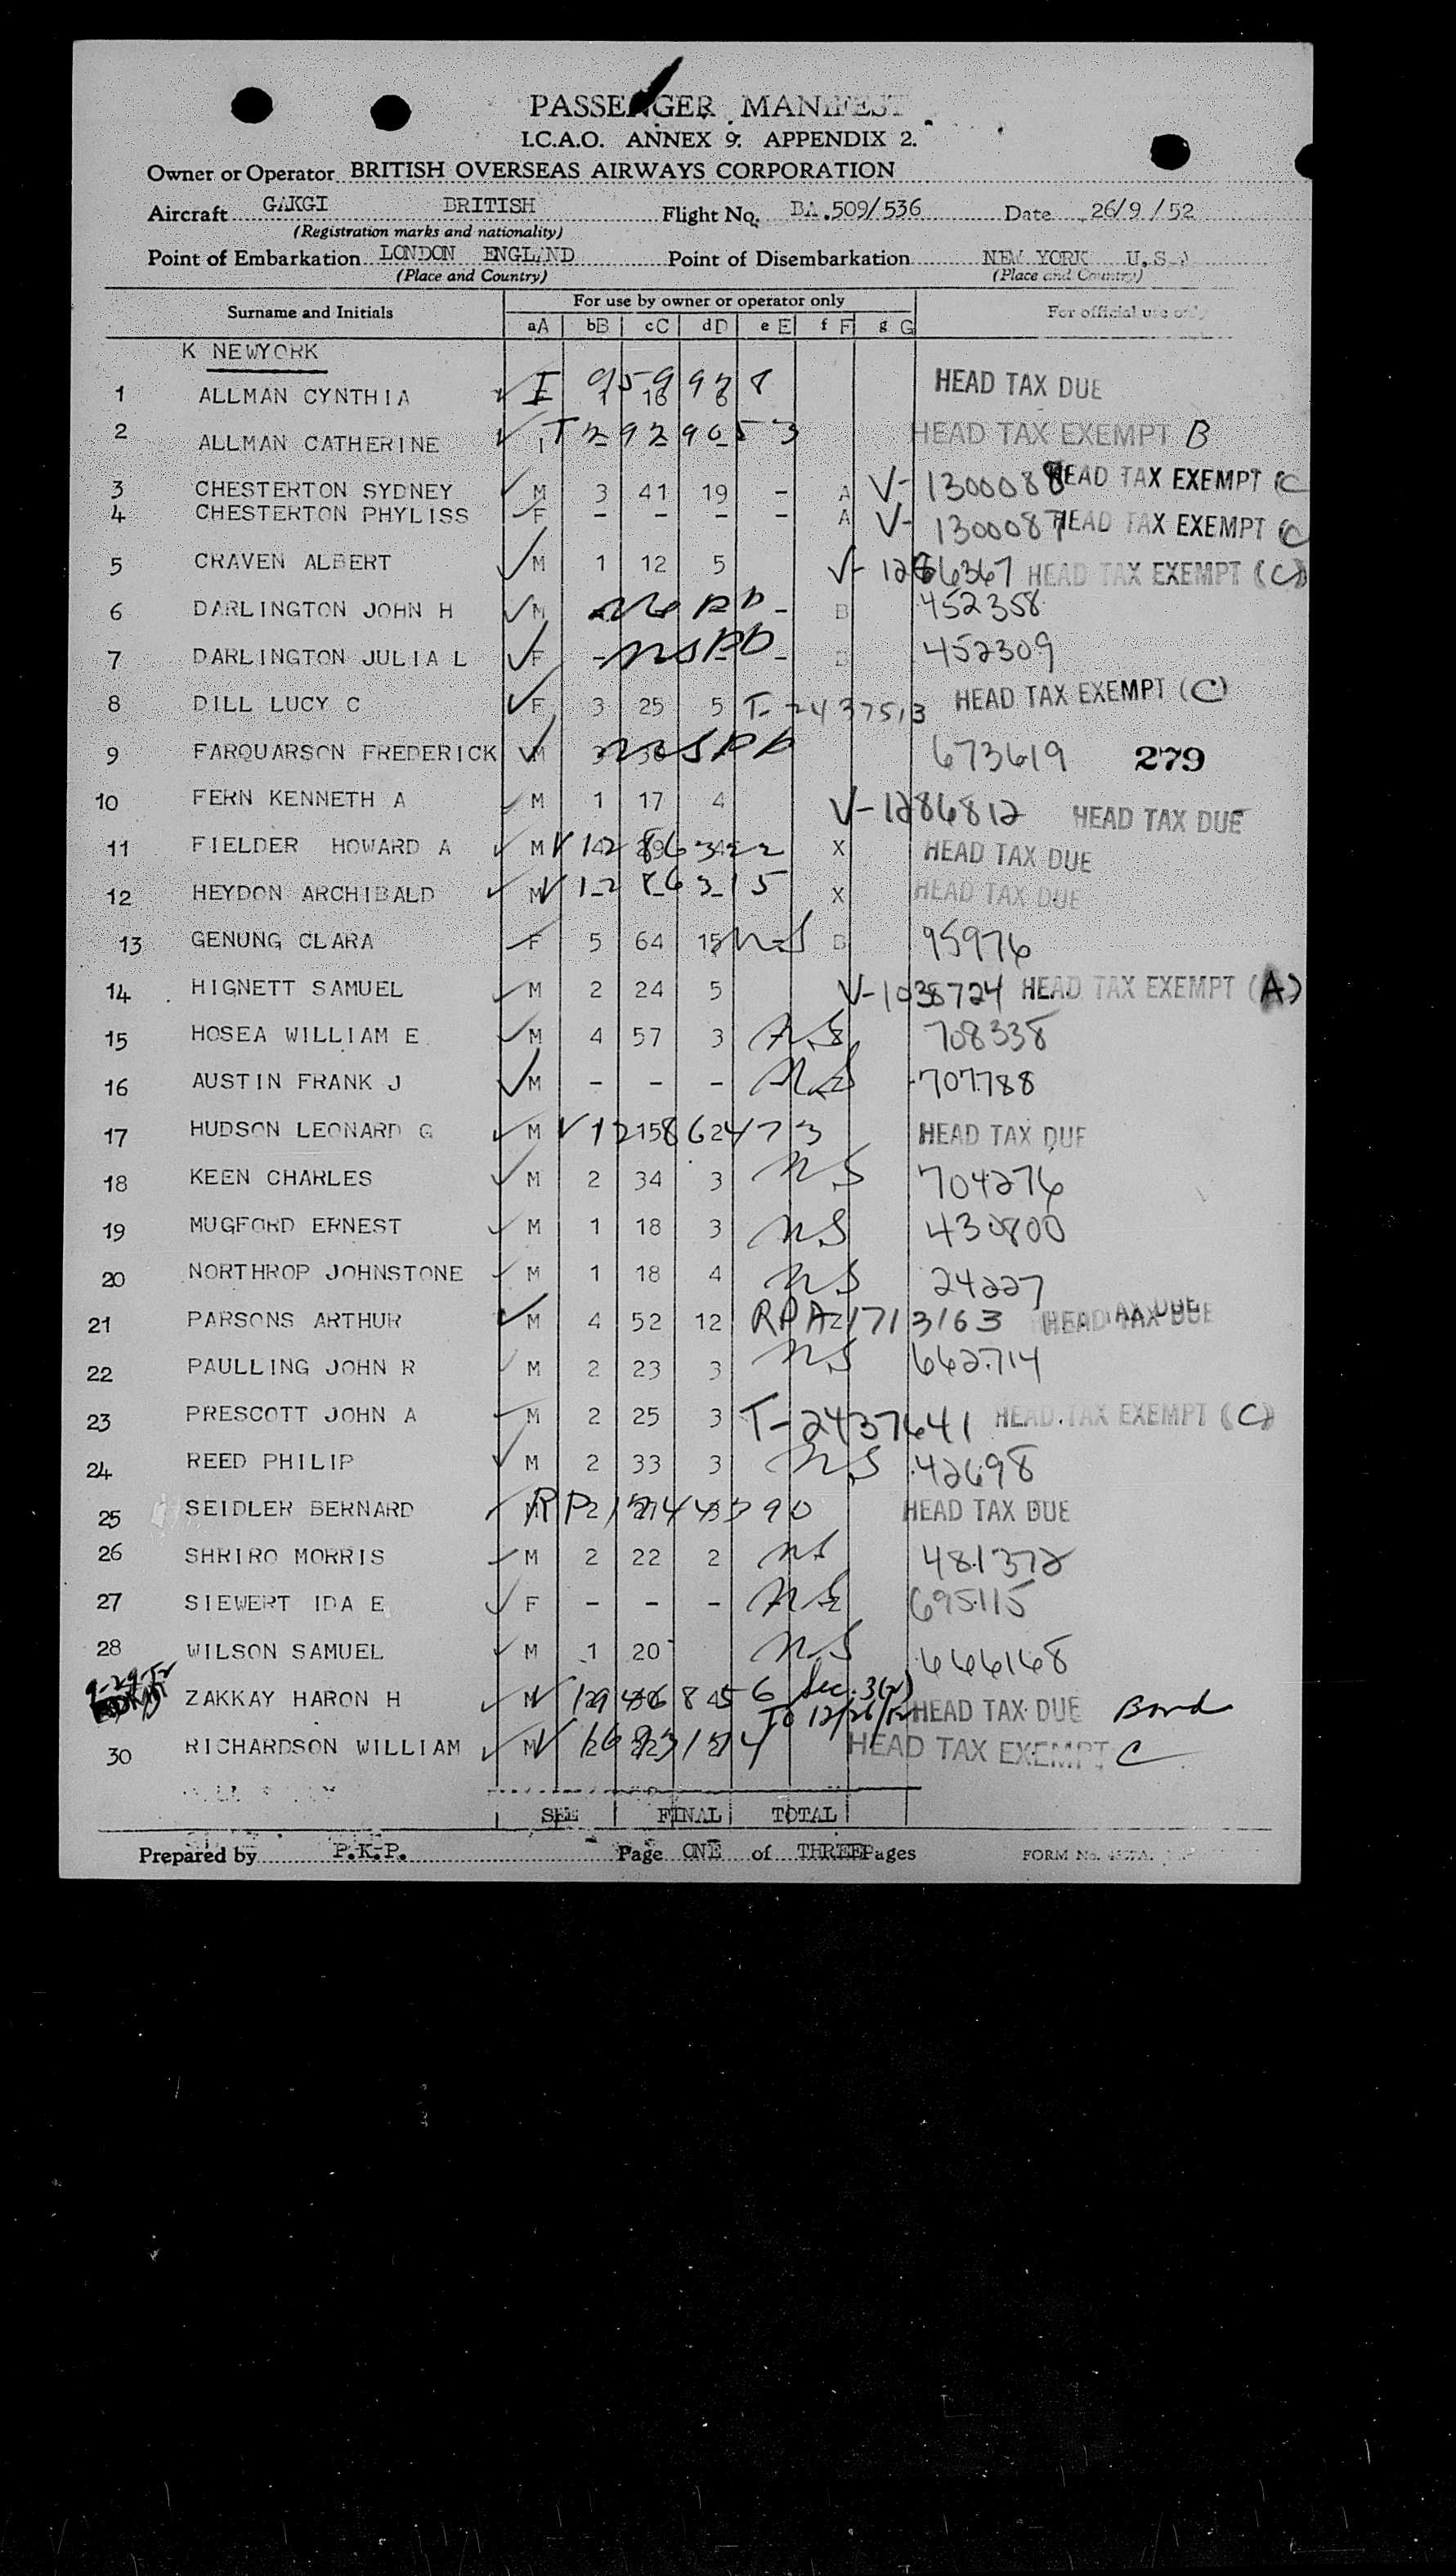 PASSENGER MANIFEST
I.C.A.O. ANNEX 9. APPENDIX 2.
Owner or Operator BRITISH OVERSEAS AIRWAYS CORPORATION
Aircraft GAKGI BRITISH Flight No. BA.509/536 Date 26/9/52
(Registration marks and nationality)
Point of Embarkation LONDON ENGLAND Point of Disembarkation NEW YORK U.S.A
(Place and Country) (Place and Country)
Surname and Initials For use by owner or operator only For official use only
aA bB cC dD eE fF gG
K NEWYORK
1 ALLMAN CYNTHIA I 959978 HEAD TAX DUE
2 ALLMAN CATHERINE T 2929053 HEAD TAX EXEMPT B
3 CHESTERTON SYDNEY M 3 41 19 - A V-1300088 HEAD TAX EXEMPT (C
4 CHESTERTON PHYLISS F - - - - A V-1300087 HEAD TAX EXEMPT (C
5 CRAVEN ALBERT M 1 12 5 V-1286367 HEAD TAX EXEMPT (C)
6 DARLINGTON JOHN H M - B 452358
7 DARLINGTON JULIA L F - - 452309
8 DILL LUCY C F 3 25 5 T-2437513 HEAD TAX EXEMPT (C)
9 FARQUARSON FREDERICK M 673619 279
10 FERN KENNETH A M 1 17 4 V-1286812 HEAD TAX DUE
11 FIELDER HOWARD A M V 1286322 X HEAD TAX DUE
12 HEYDON ARCHIBALD M V 1286315 X HEAD TAX DUE
13 GENUNG CLARA F 5 64 15 NS B 95976
14 HIGNETT SAMUEL M 2 24 5 V-1038724 HEAD TAX EXEMPT (A)
15 HOSEA WILLIAM E M 4 57 3 NS 708338
16 AUSTIN FRANK J M - - - NS 707788
17 HUDSON LEONARD G M V 1286473 HEAD TAX DUE
18 KEEN CHARLES M 2 34 3 NS 704276
19 MUGFORD ERNEST M 1 18 3 NS 430800
20 NORTHROP JOHNSTONE M 1 18 4 NS 24227
21 PARSONS ARTHUR M 4 52 12 RPA-1713163 HEAD TAX DUE
22 PAULLING JOHN R M 2 23 3 NS 662714
23 PRESCOTT JOHN A M 2 25 3 T-2437641 HEAD TAX EXEMPT (C)
24 REED PHILIP M 2 33 3 NS 42698
25 SEIDLER BERNARD RP HEAD TAX DUE
26 SHRIRO MORRIS M 2 22 2 NS 481372
27 SIEWERT IDA E F - - - NS 695115
28 WILSON SAMUEL M 1 20 NS 666168
ZAKKAY HARON H M V Sec. 3(2) To 12/26/52 HEAD TAX DUE Bond
30 RICHARDSON WILLIAM M V HEAD TAX EXEMPT C
SEE FINAL TOTAL
Prepared by P.K.P. Page ONE of THREE Pages FORM No.